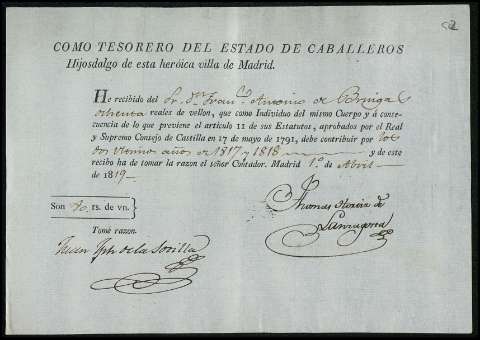 COMO TESORERO DEL ESTADO DE CABALLEROS
Hijosdalgo de esta heróica villa de Madrid.
He recibido del Sr. Dn. Franco. Antonio de
ochenta reales de vellon, que como Individuo del mismo Cuerpo y á conse-
cuencia de lo que previene el artículo 11 de sus Estatutos, aprobados por el Real
y Supremo Consejo de Castilla en 17 de mayo de 1791, debe contribuir por los
dos ultimos años de 1817 y 1818 y de este
recibo ha de tomar la razon el señor Contador. Madrid 1º de Abril
de 1819
Son 80 rs. de vn.
Thomas de
Tomé razon.
Juan de la